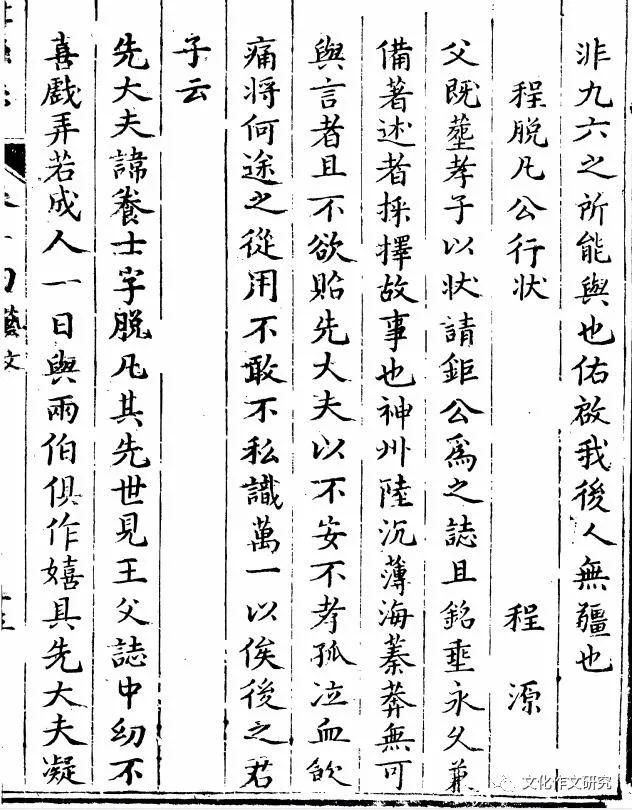 非九六之所能與也佑啟我後人無疆也
程脫凡公行状 程源
父既塟孝子以状請鉅公爲之誌且銘埀永久兼
備著述者採擇故事也神州陸沉薄海蓁莽無可
與言者且不欲貽先大夫以不安不孝孤泣血飲
痛将何途之從用不敢不私識萬一以俟後之君
子云
先大夫諱養士字脫凡其先世見王父誌中幼不
喜戲弄若成人一日與兩伯俱作嬉具先大夫凝
藝文
文化作文研究